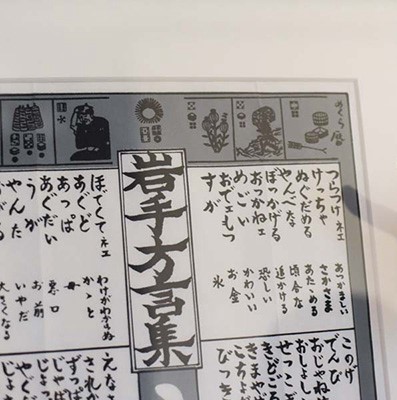 めくら暦
岩手方言集
つらつけネェ あつかましい
けっちゃ さかさま
ぬぐだめる あたゝめる
やんべな 頃合な
ぼっかげる 追かける
おっかねェ 恐しい
めごい かわいい
おでェもつ お金
すが 氷
ほでくてネェ わけがわからぬ
あぐど かゝと
あっぱ 母
悪口
うが お前
やんた いやだ
がる 大きくなる
このげ
でんび
おじゃね
おしょし
せっこ
きどごろ
きまやげ
こちょが
びっき
えなさ
されか
ずっぱ